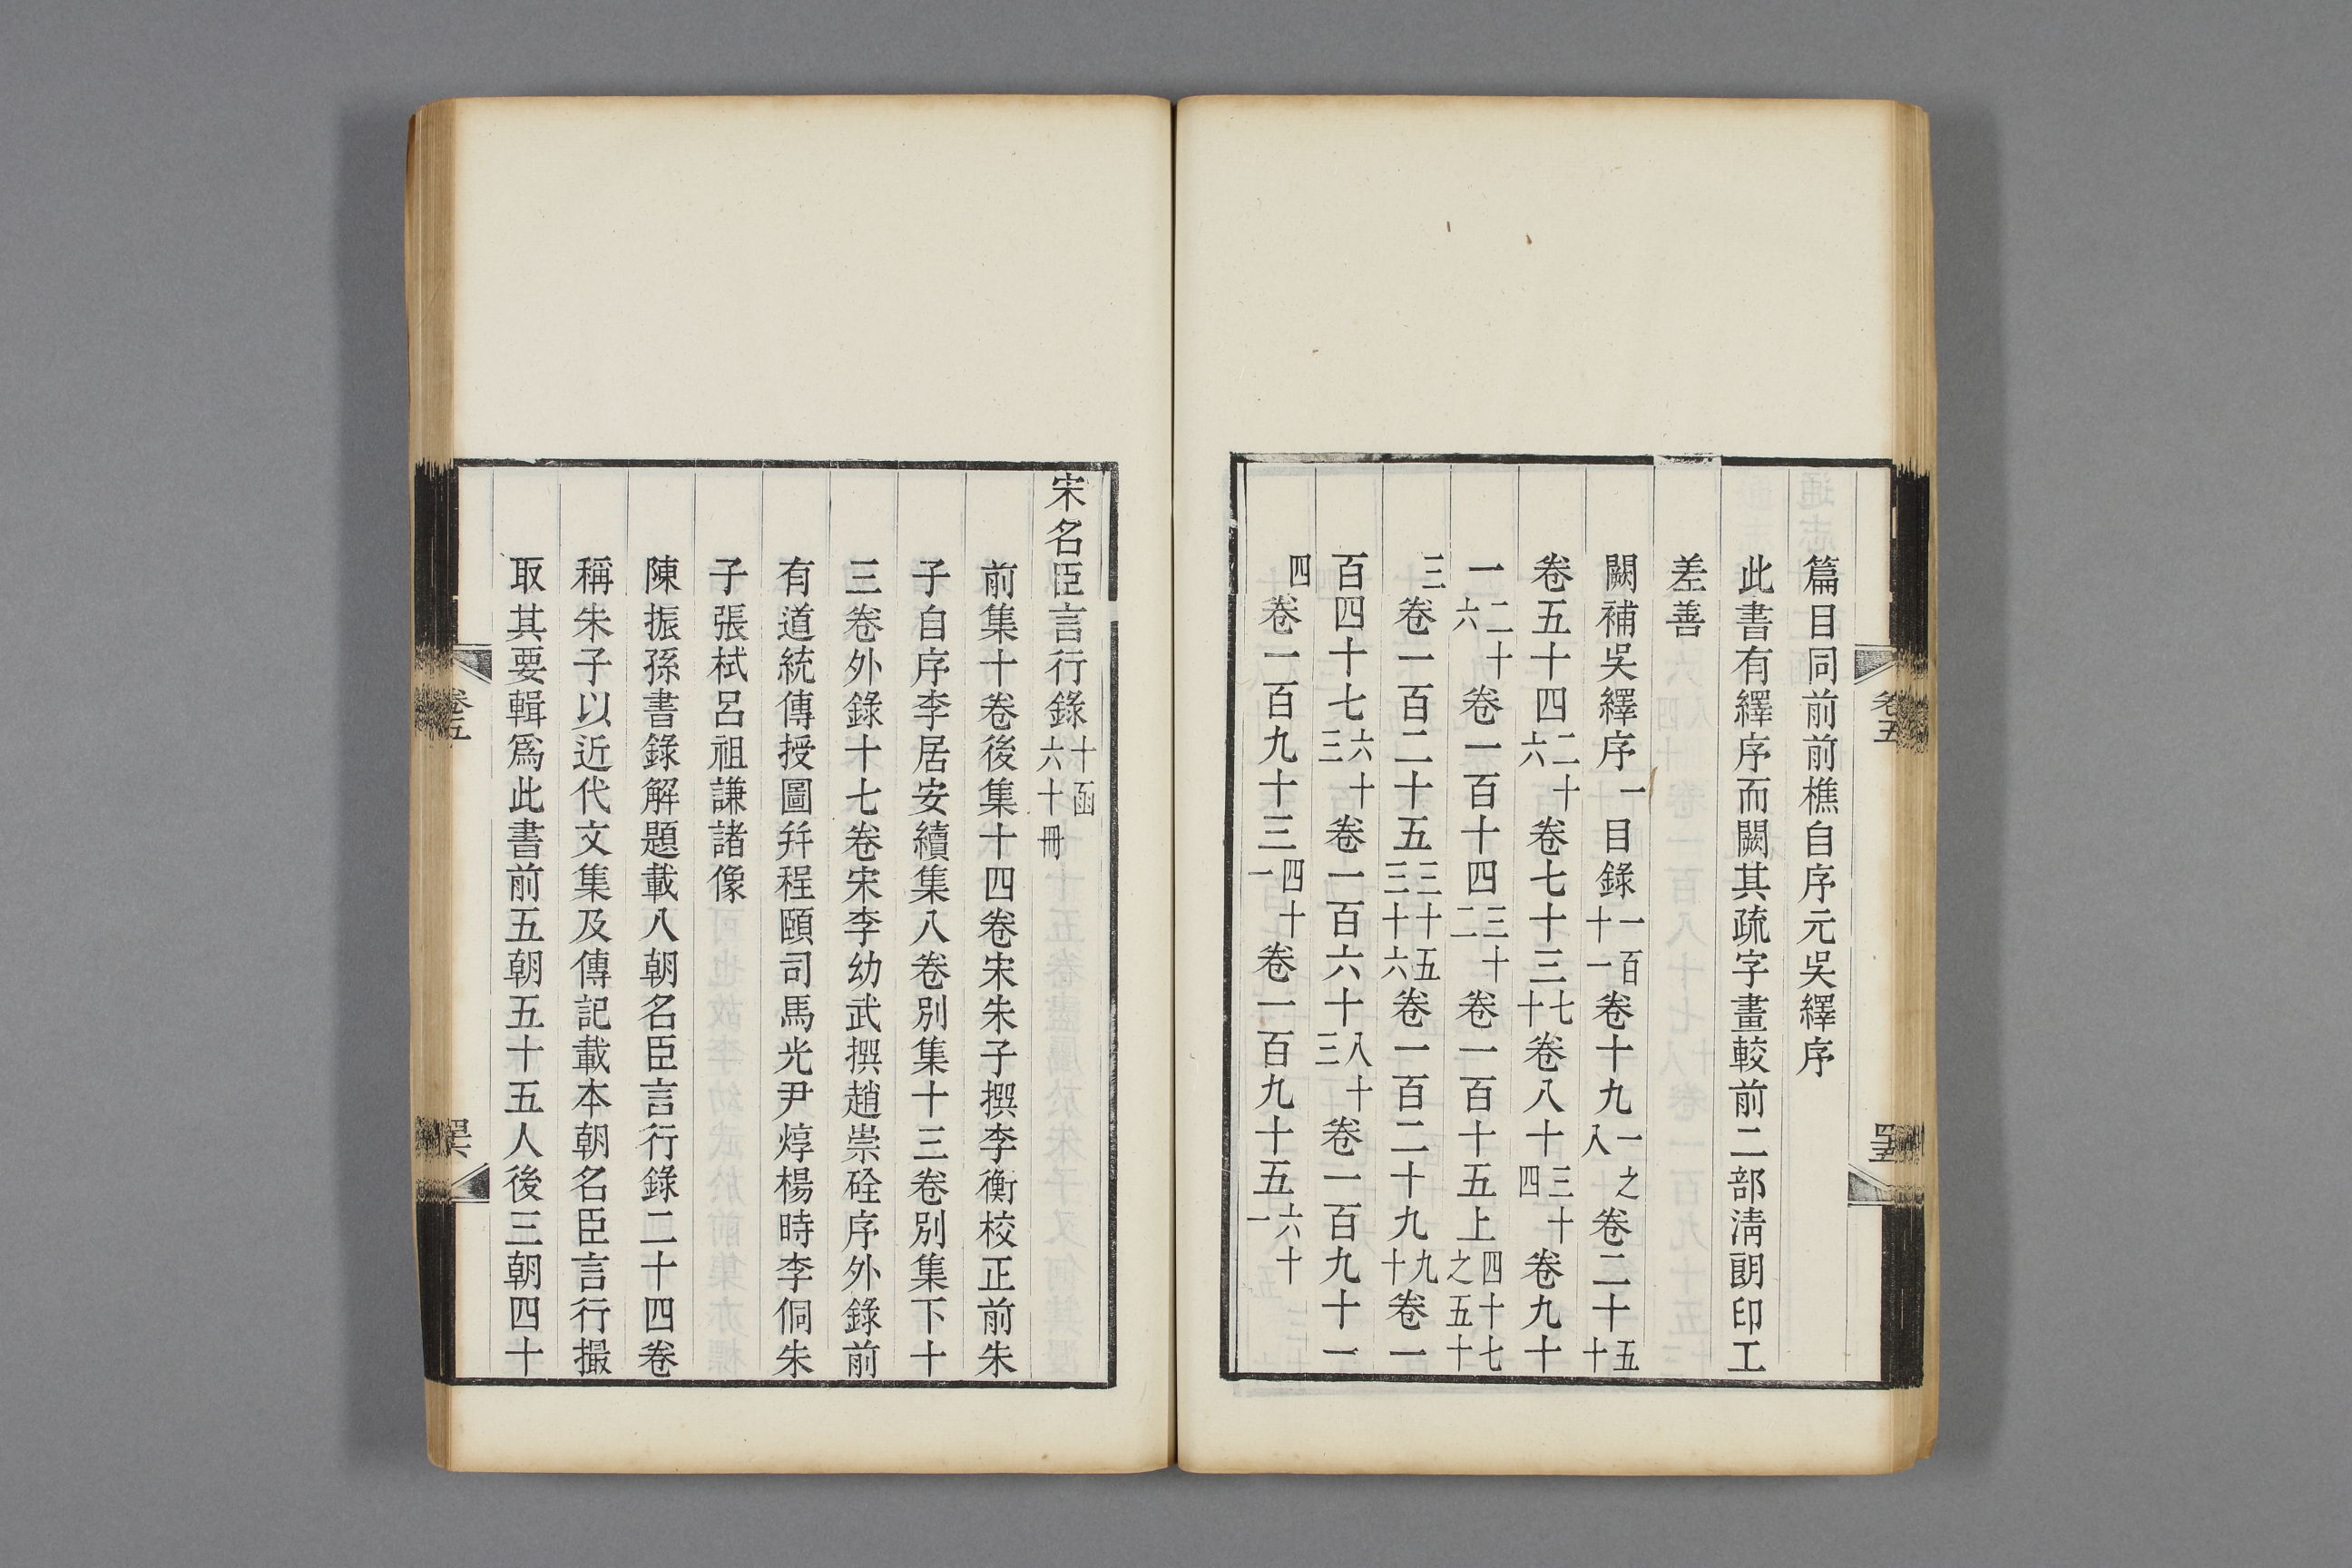 卷五
四五
篇目同前前樵自序元吳繹序
此書有繹序而闕其疏字畫較前二部淸朗印工
差善
闕補吳繹序一目錄一百十一卷十九一之八卷二十五十
卷五十四二十六卷七十三七十卷八十三十四卷九十
一二十六卷一百十四三十二卷一百十五上四十七之五十
三卷一百二十五三十五三十六卷一百二十九九十卷一
百四十七六十三卷一百六十八十三卷一百九十一
四卷一百九十三四十一卷一百九十五六十一
宋名臣言行錄十函六十冊
前集十卷後集十四卷宋朱子撰李衡校正前朱
子自序李居安續集八卷別集十三卷別集下十
三卷外錄十七卷宋李幼武撰趙崇硂序外錄前
有道統傳授圖幷程頤司馬光尹焞楊時李侗朱
子張栻呂祖謙諸像
陳振孫書錄解題載八朝名臣言行錄二十四卷
稱朱子以近代文集及傳記載本朝名臣言行撮
取其要輯爲此書前五朝五十五人後三朝四十
卷五